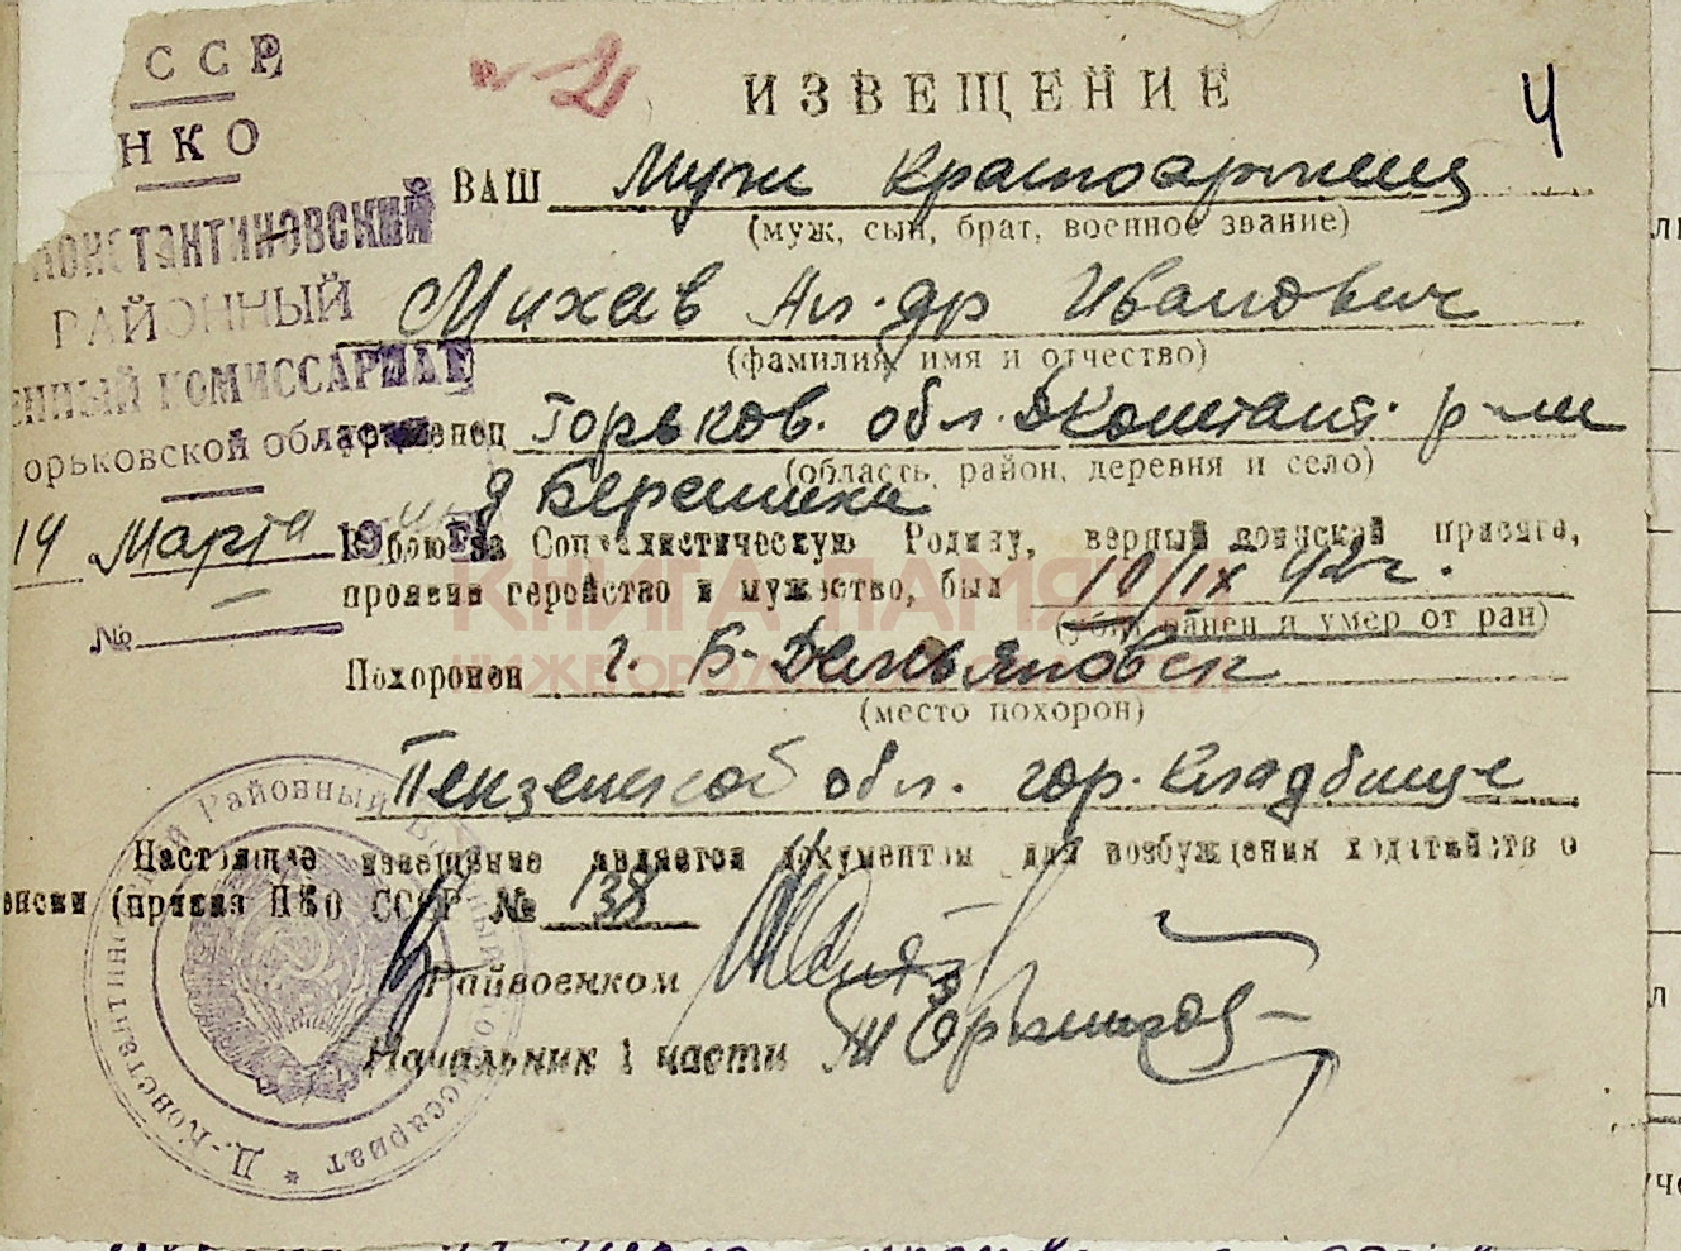 ССР
НКО
КОНСТАНТИНОВСКИЙ
РАЙОННЫЙ
ЕННЫЙ КОМИССАРИАТ
орьковской области
14 Марта 194 г.
№
№ 2
ИЗВЕЩЕНИЕ
4
ВАШ муж красноармеец
(муж, сын, брат, военное звание)
Михав Ал-др Иванович
(фамилия, имя и отчество)
Горьков. обл. ДКонстант. р-на
(область, район, деревня и село)
д Березники
В бою за Социалистическую Родину, верный воинской присяге,
проявив геройство и мужество, был 10/IX 42 г.
ранен и умер от ран)
Похоронен г. Б-Демьяновск
(место похорон)
Пензенской обл. гор. кладбище
Настоящее извещение является документом для возбуждения ходатайств о
енсии (приказ НКО СССР № 138
Райвоенком
Начальник 1 части
Д.-Константиновский Районный Военный Комиссариат *
КНИГА ПАМЯТИ
НИЖЕГОРОДСКОЙ ОБЛАСТИ